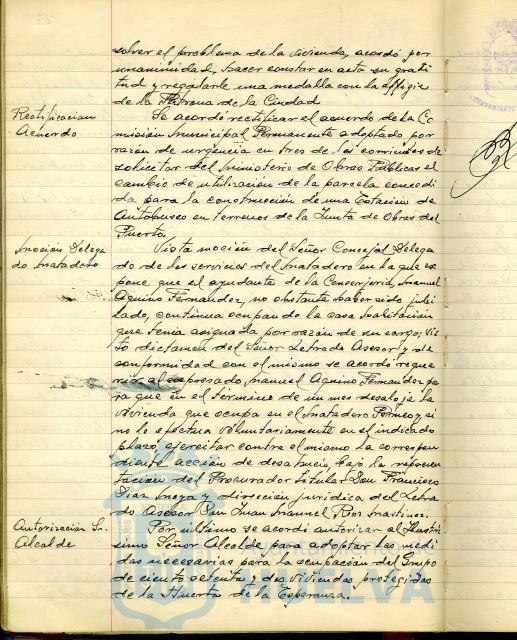 solver el problema de la vivienda, acordó por
unanimidad, hacer constar en acta su grati
tud y regalarle una medalla con la Effigie
de la Patrona de la Ciudad
Rectificación
Acuerdo
Se acordó rectificar el acuerdo de la Co
misión municipal Permanente adoptado por
razón de urgencia en tres de los corrientes de
solicitar del ministerio de Obras Públicas el
cambio de utilización de la parcela concedi
da para la construcción de una Estación de
Autobuses en terrenos de la Junta de Obras del
Puerto.
moción Delega
do matadero
Vista moción del Señor Concejal Delega
do de los servicios del matadero en la que ex
pone que el ayudante de la Conserjería, manuel
Aquino Fernandez, no obstante haber sido jubi
lado, continua ocupando la casa habitación
que tenia asignada por razón de su cargo; Vis
to dictamen del Señor Letrado Asesor y de
conformidad con el mismo se acordó reque
rir al expresado, manuel Aquino Fernandez pa
ra que en el término de un mes desaloje la
vivienda que ocupa en el matadero y si
no lo efectua voluntariamente en el indicado
plazo, ejercitar contra el mismo la correspon
diente acción de desahucio, bajo la represen
tación del Procurador titular Don Francisco
Diaz y dirección juridica del Letra
do Asesor Don Juan manuel Ros martinez.
Autorización Sr.
Alcalde
Por ultimo se acordó autorizar al Ilustrí
simo Señor Alcalde para adoptar las medi
das necesarias para la ocupación del Grupo
de ciento setenta y dos viviendas protegidas
de la Huerta de la Esperanza.
HUELVA